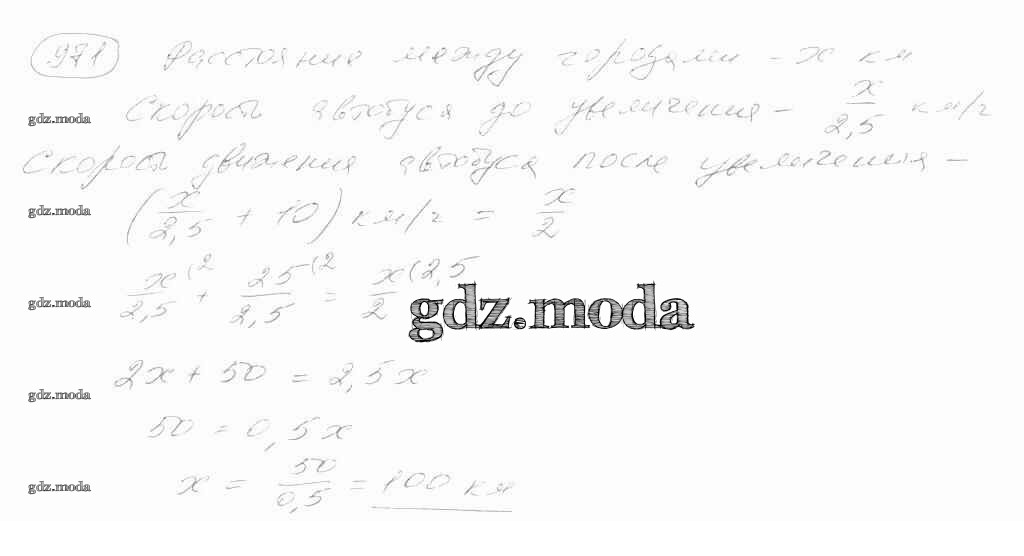 971 Расстояние между городами - x км
gdz.moda Скорость автобуса до увеличения - x/2,5 км/г
Скорость движения автобуса после увеличения -
gdz.moda (x/2,5 + 10) км/г = x/2
gdz.moda x(2/2,5 + 25(2/2,5 = x(2,5/2
gdz.moda
gdz.moda 2x + 50 = 2,5x
50 = 0,5x
gdz.moda x = 50/0,5 = 100 км